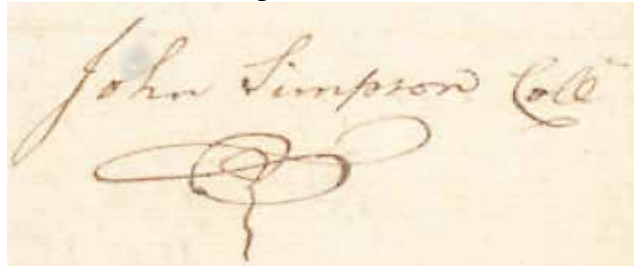 John Simpson Coll^r